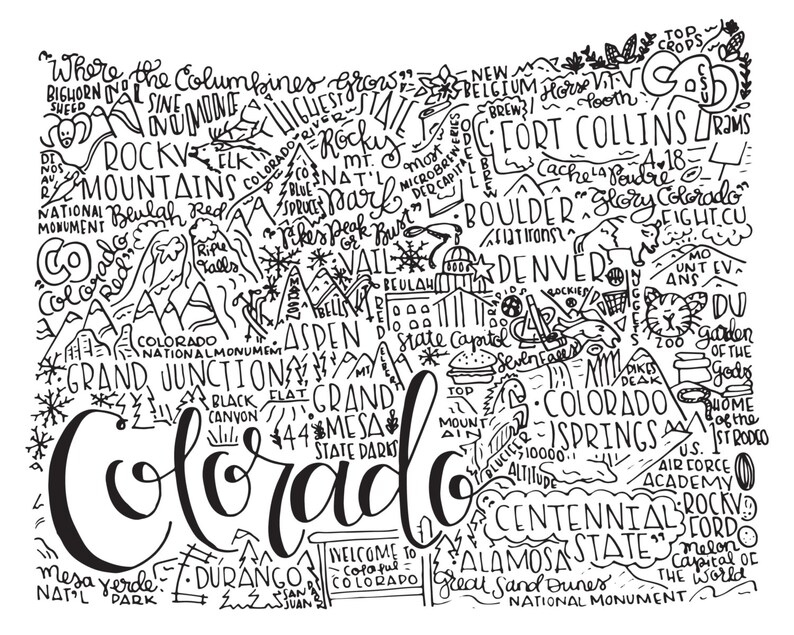 "Where the Columbines grow"
BIGHORN
SHEEP
SINE
NUMINE
GUEST
STATE
NEW
BELGIUM
BREW
Horse
Tooth
TOP
CROPS
CSU
RAMS
FORT COLLINS
A 18
Cache La Poudre
ROCKY
MOUNTAINS
ELK
COLORADO RIVER
Rocky
mt.
NAT'L
Park
CO
BLUE
SPRUCE
Most
MICROBREWERIES
PER CAPITA
DI
NOS
AU
R
NATIONAL
MONUMENT
Beulah Red
BOULDER
flatirons
"Glory Colorado"
FIGHT CU
CO
"Colorado
Red"
Rifle
Falls
"Pikes Peak
or Bust"
VAIL
BEULAH
RED
DENVER
MO
UNT EV
ANS
MAROON
BELLS
RAPIDS
ROCKIES
NUGGETS
ZOO
DU
COLORADO
NATIONAL MONUMENT
ASPEN
State Capitol
Seven Falls
Garden
OF THE
gods
GRAND JUNCTION
MT
ELBERT
PIKES
PEAK
BLACK
CANYON
FLAT
GRAND
MESA
44
STATE PARKS
TOP
MOUNT
AIN
COLORADO
SPRINGS
HOME
of the
1ST RODEO
10000
ALTITUDE
U.S.
AIR FORCE
ACADEMY
Colorado
"CENTENNIAL
STATE"
ROCKY
FORD
melon
Capital OF
THE World
ALAMOSA
Mesa Verde
NAT'L PARK
DURANGO
SAN
JUAN
WELCOME TO
Colorful
COLORADO
Great Sand Dunes
NATIONAL MONUMENT